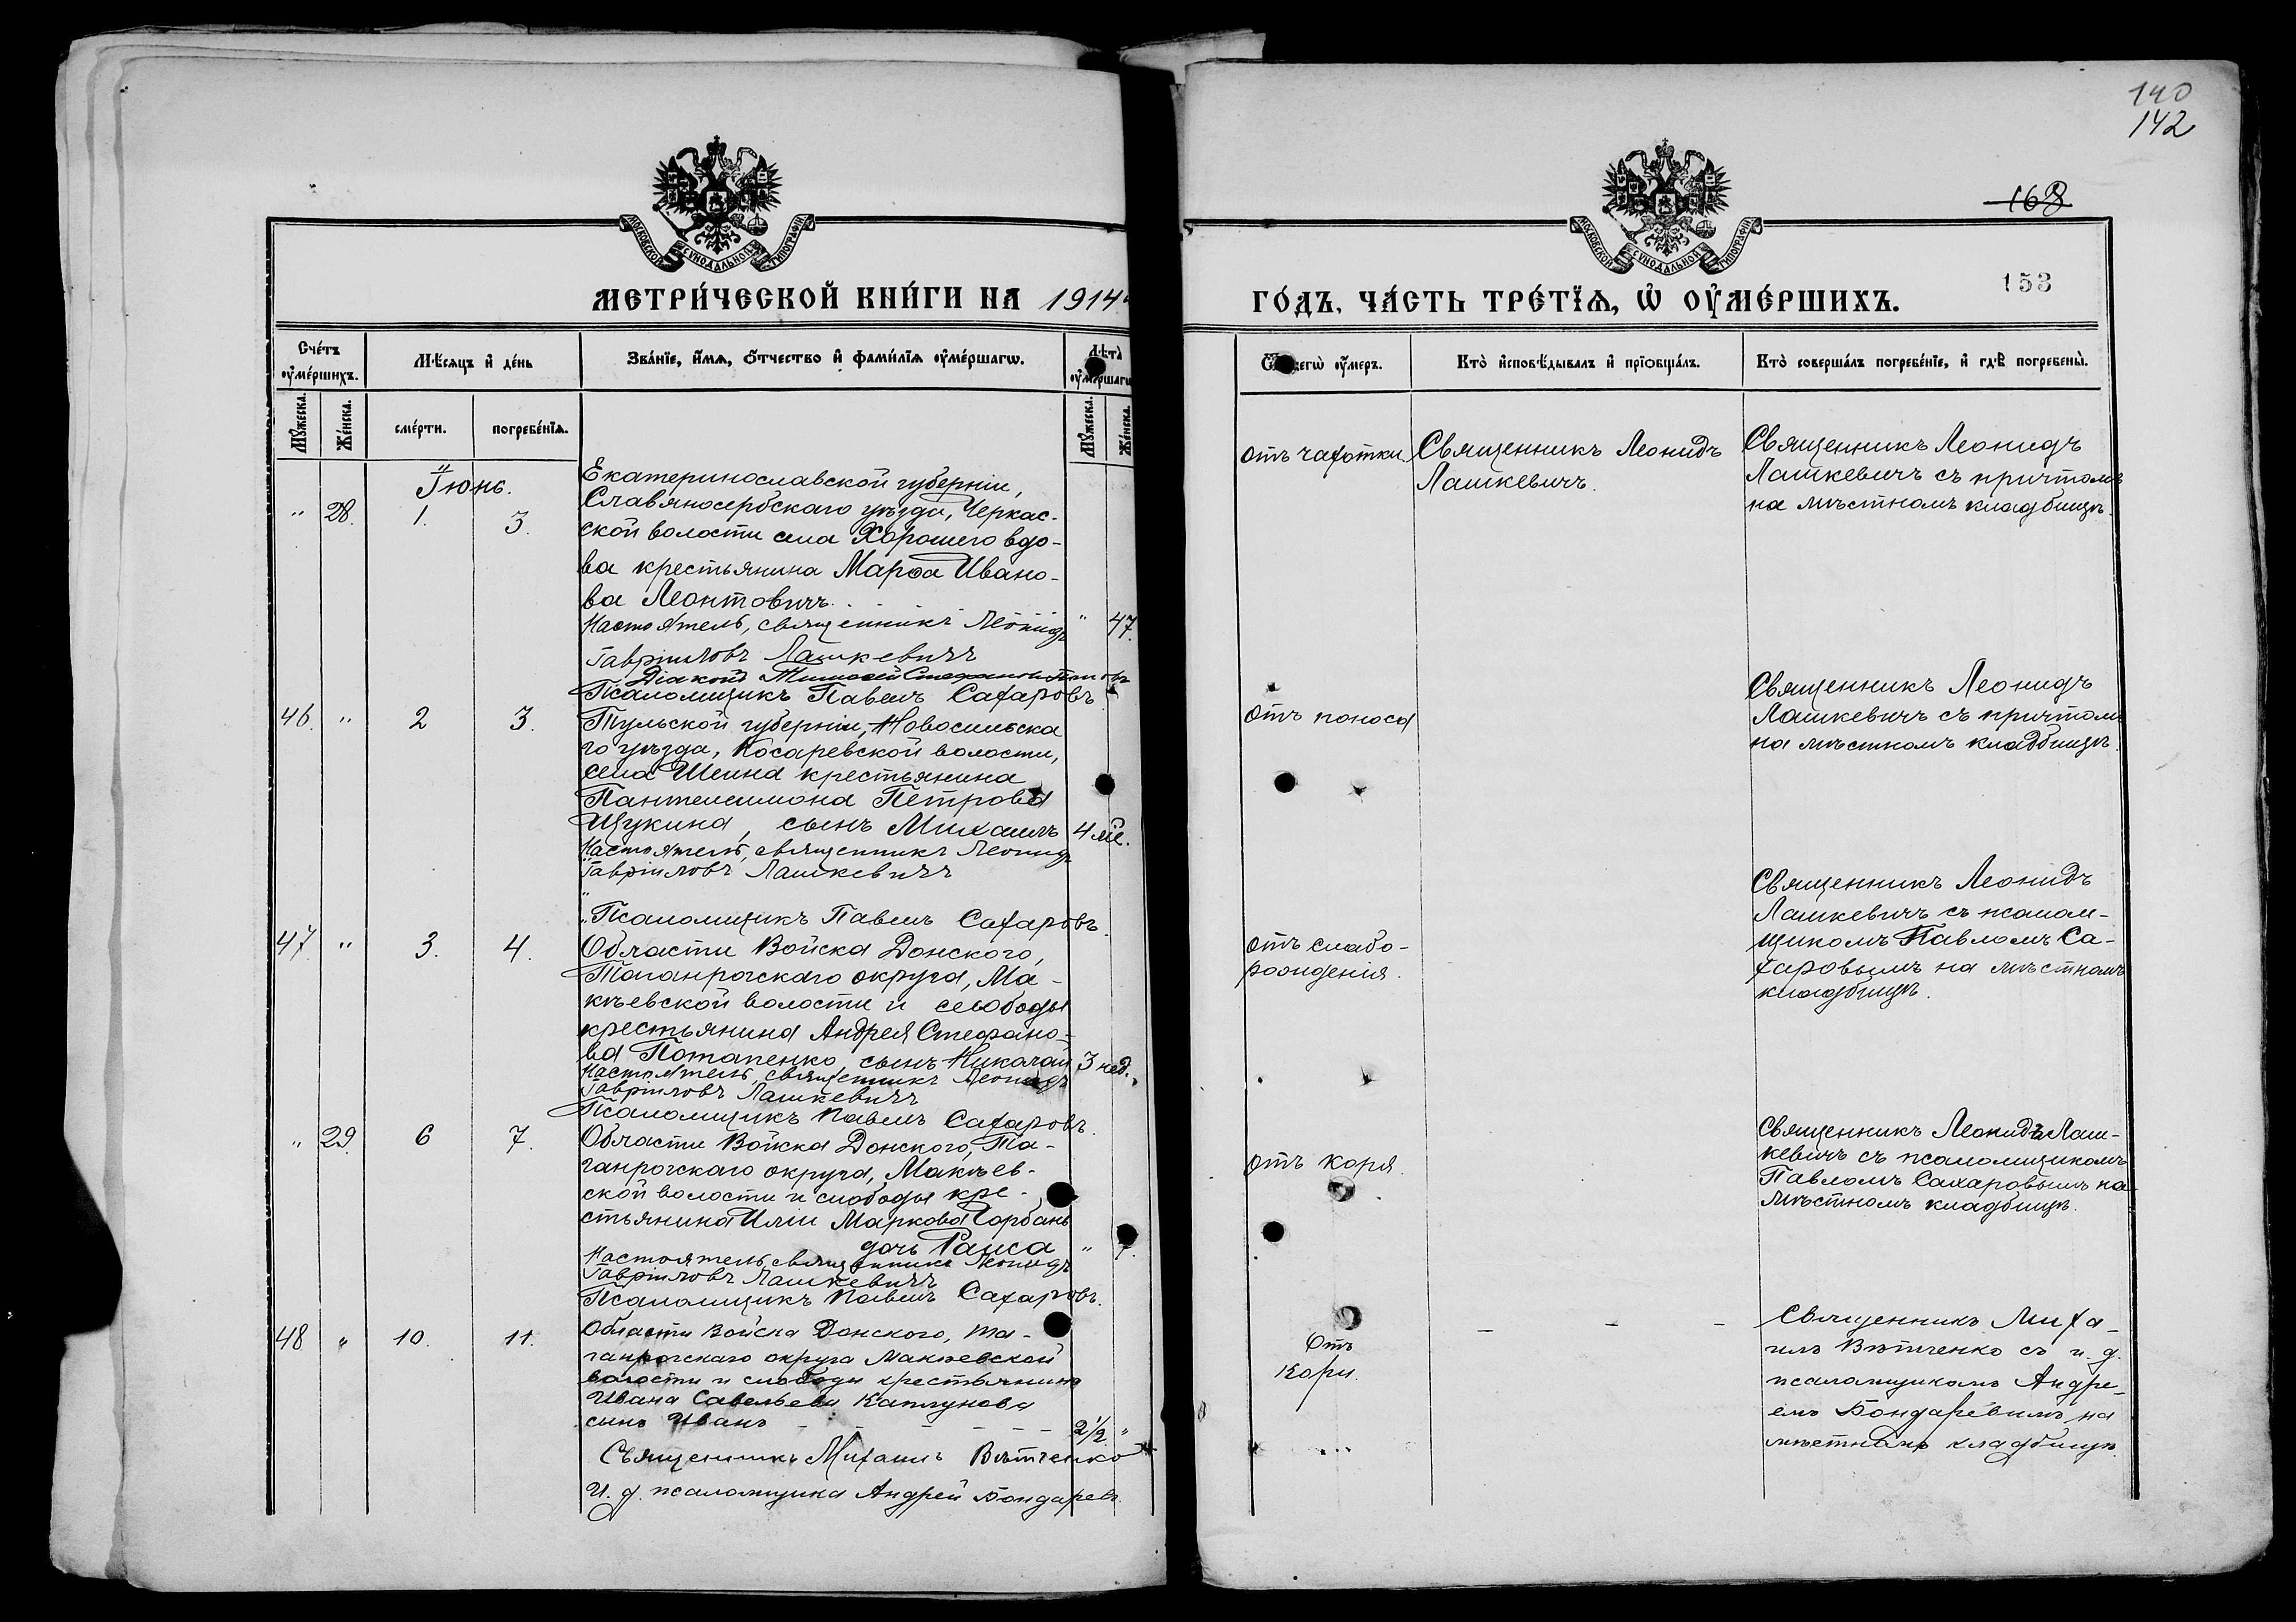 140
142
168
153
МОСКОВСКОЙ СѴНОДАЛЬНОЙ ТИПОГРАФІИ
МОСКОВСКОЙ СѴНОДАЛЬНОЙ ТИПОГРАФІИ
МЕТРИ́ЧЕСКОЙ КНИ́ГИ НА 1914
ГО́ДЪ, ЧА́СТЬ ТРЕ́ТЇѦ, Ѡ҆ ОУ҆МЕ́РШИХЪ.
Сче́тъ оу҆ме́ршихъ.
Мѣ́сяцъ и҆ де́нь
Зва́нїе, и҆́мѧ, ѻ҆́тчество и҆ фами́лїѧ оу҆ме́ршагѡ.
Лѣта̀ оу҆ме́ршагѡ
Му́жеска.
Же́нска.
сме́рти.
погребе́нїѧ.
Му́жеска.
Же́нска.
оу҆́меръ.
Кто̀ и҆сповѣ́дывалъ и҆ прїѡбща́лъ.
Кто̀ соверша́лъ погребе́нїе, и҆ гдѣ̀ погребены̀.
Іюнь.
" 28. 1. 3.
Екатеринославской губерніи,
Славяносербскаго уѣзда, Черкас-
ской волости села Хорошего вдо-
ва крестьянина Марѳа Ивано-
ва Леонтовичъ.
" 47.
Настоятель, священникъ Леонидъ
Гавріиловъ Лашкевичъ
Діаконъ
Псаломщикъ Павелъ Сахаровъ
отъ чахотки.
Священникъ Леонидъ
Лашкевичъ.
Священникъ Леонидъ
Лашкевичъ съ причтомъ
на мѣстномъ кладбищѣ.
46. " 2 3.
Тульской губерніи, Новосильска
го уѣзда, Косаревской волости,
села Шеина крестьянина
Пантелеимона Петрова
Щукина, сынъ Михаилъ 4 мѣ.
Настоятель, священникъ Леонидъ
Гавріиловъ Лашкевичъ
"
"Псаломщикъ Павелъ Сахаровъ.
отъ поноса
Священникъ Леонидъ
Лашкевичъ съ причтомъ
на мѣстномъ кладбищѣ.
47. " 3. 4.
Области Войска Донского,
Таганрогскаго округа, Ма-
кѣевской волости и слободы
крестьянина Андрея Стефано-
ва Потапенко сынъ Николай 3 нед. "
Настоятель, священникъ Леонидъ
Гавріиловъ Лашкевичъ
Псаломщикъ Павелъ Сахаровъ.
отъ слабо-
рожденія.
Священникъ Леонидъ
Лашкевичъ съ псалом-
щикомъ Павломъ Са-
харовымъ на мѣстномъ
кладбищѣ.
" 29. 6 7.
Области Войска Донского, Та-
ганрогскаго округа, Макѣев-
ской волости и слободы кре-
стьянина Иліи Маркова Горбань
дочь Раиса " 7.
Настоятель, священникъ Леонидъ
Гавріиловъ Лашкевичъ
Псаломщикъ Павелъ Сахаровъ.
отъ коря.
Священникъ Леонидъ Лаш-
кевичъ съ псаломщикомъ
Павломъ Сахаровымъ на
мѣстномъ кладбищѣ.
48 " 10. 11.
Области Войска Донского, Та-
ганрогскаго округа Макѣевской
волости и слободы крестьянина
Ивана Савельева Каплунова
сынъ Иванъ 2 1/2. "
Священникъ Михаилъ Вѣтченко
И. д. псаломщика Андрей Бондаревъ.
Отъ
кори.
Священникъ Миха-
илъ Вѣтченко съ и. д.
псаломщикомъ Андре-
емъ Бондаревымъ на
мѣстномъ кладбищѣ.